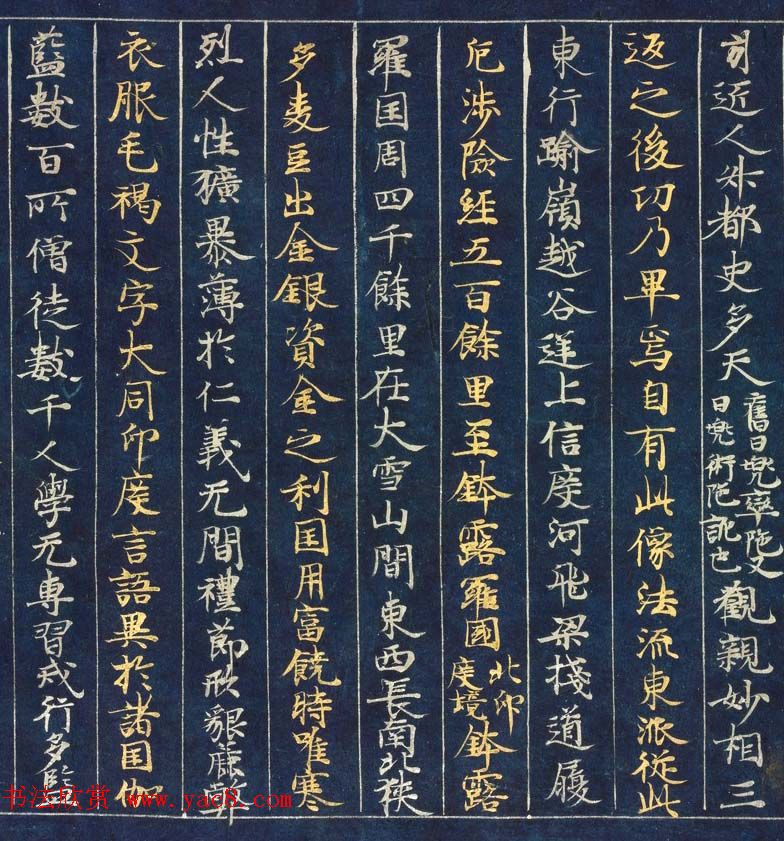 引近人升都史多天舊曰兜率陁又曰兜術陁訛也觀親妙相三
返之後功乃畢焉自有此像法流東派從此
東行踰嶺越谷逆上信度河飛梁棧道履
危涉險經五百餘里至鉢露羅國北印度境鉢露
羅囯周四千餘里在大雪山間東西長南北狹
多麦豆出金銀資金之利囯用富饒時唯寒
烈人性獷暴薄於仁義无間禮節形貌麁弊
衣服毛褐文字大同印度言語異於諸囯伽
藍數百所僧徒數千人學无專習戒行多濫
书法欣赏 www.yac8.com